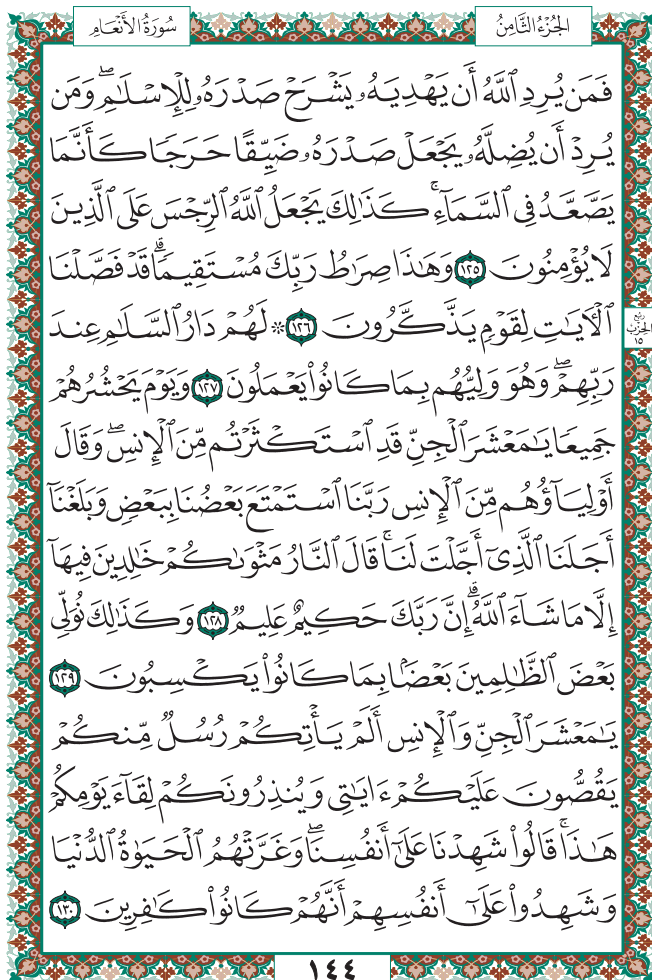 سُورَةُ الأَنْعَامِ
الجُزْءُ الثَّامِنُ
فَمَن يُرِدِ ٱللَّهُ أَن يَهْدِيَهُۥ يَشْرَحْ صَدْرَهُۥ لِلْإِسْلَٰمِۖ وَمَن
يُرِدْ أَن يُضِلَّهُۥ يَجْعَلْ صَدْرَهُۥ ضَيِّقًا حَرَجًا كَأَنَّمَا
يَصَّعَّدُ فِي ٱلسَّمَآءِۚ كَذَٰلِكَ يَجْعَلُ ٱللَّهُ ٱلرِّجْسَ عَلَى ٱلَّذِينَ
لَا يُؤْمِنُونَ ١٢٥ وَهَٰذَا صِرَٰطُ رَبِّكَ مُسْتَقِيمًاۗ قَدْ فَصَّلْنَا
ٱلْأٓيَٰتِ لِقَوْمٍ يَذَّكَّرُونَ ١٢٦ ۞ لَهُمْ دَارُ ٱلسَّلَٰمِ عِندَ
رَبِّهِمْۖ وَهُوَ وَلِيُّهُم بِمَا كَانُوا۟ يَعْمَلُونَ ١٢٧ وَيَوْمَ يَحْشُرُهُمْ
جَمِيعًا يَٰمَعْشَرَ ٱلْجِنِّ قَدِ ٱسْتَكْثَرْتُم مِّنَ ٱلْإِنسِۖ وَقَالَ
أَوْلِيَآؤُهُم مِّنَ ٱلْإِنسِ رَبَّنَا ٱسْتَمْتَعَ بَعْضُنَا بِبَعْضٍ وَبَلَغْنَآ
أَجَلَنَا ٱلَّذِيٓ أَجَّلْتَ لَنَاۚ قَالَ ٱلنَّارُ مَثْوَىٰكُمْ خَٰلِدِينَ فِيهَآ
إِلَّا مَا شَآءَ ٱللَّهُۗ إِنَّ رَبَّكَ حَكِيمٌ عَلِيمٌ ١٢٨ وَكَذَٰلِكَ نُوَلِّي
بَعْضَ ٱلظَّٰلِمِينَ بَعْضًۢا بِمَا كَانُوا۟ يَكْسِبُونَ ١٢٩
يَٰمَعْشَرَ ٱلْجِنِّ وَٱلْإِنسِ أَلَمْ يَأْتِكُمْ رُسُلٌ مِّنكُمْ
يَقُصُّونَ عَلَيْكُمْ ءَايَٰتِي وَيُنذِرُونَكُمْ لِقَآءَ يَوْمِكُمْ
هَٰذَاۚ قَالُوا۟ شَهِدْنَا عَلَىٰٓ أَنفُسِنَاۖ وَغَرَّتْهُمُ ٱلْحَيَوٰةُ ٱلدُّنْيَا
وَشَهِدُوا۟ عَلَىٰٓ أَنفُسِهِمْ أَنَّهُمْ كَانُوا۟ كَٰفِرِينَ ١٣٠
رُبْعُ
الحِزْبِ
١٥
١٤٤